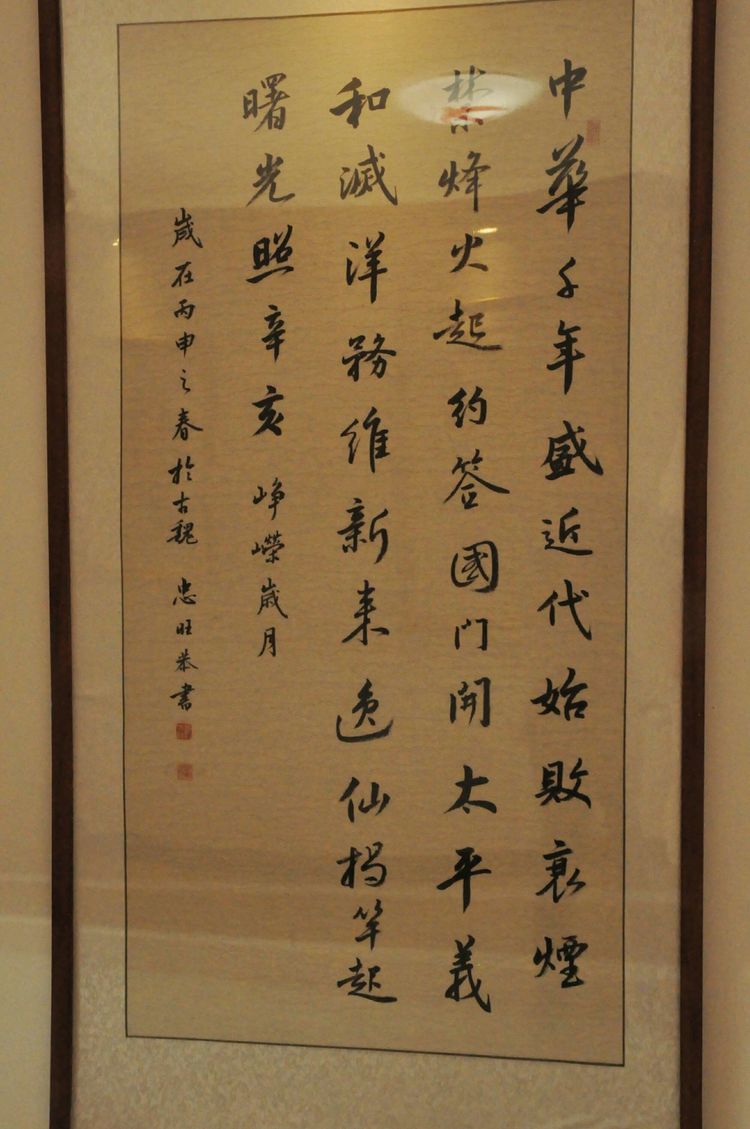 中華千年盛近代始敗衰煙
禁烽火起約签國門開太平義
和滅洋務維新来逸仙揭竿起
曙光照辛亥 峥嶸歲月
歲在丙申之春於古魏 忠旺恭書